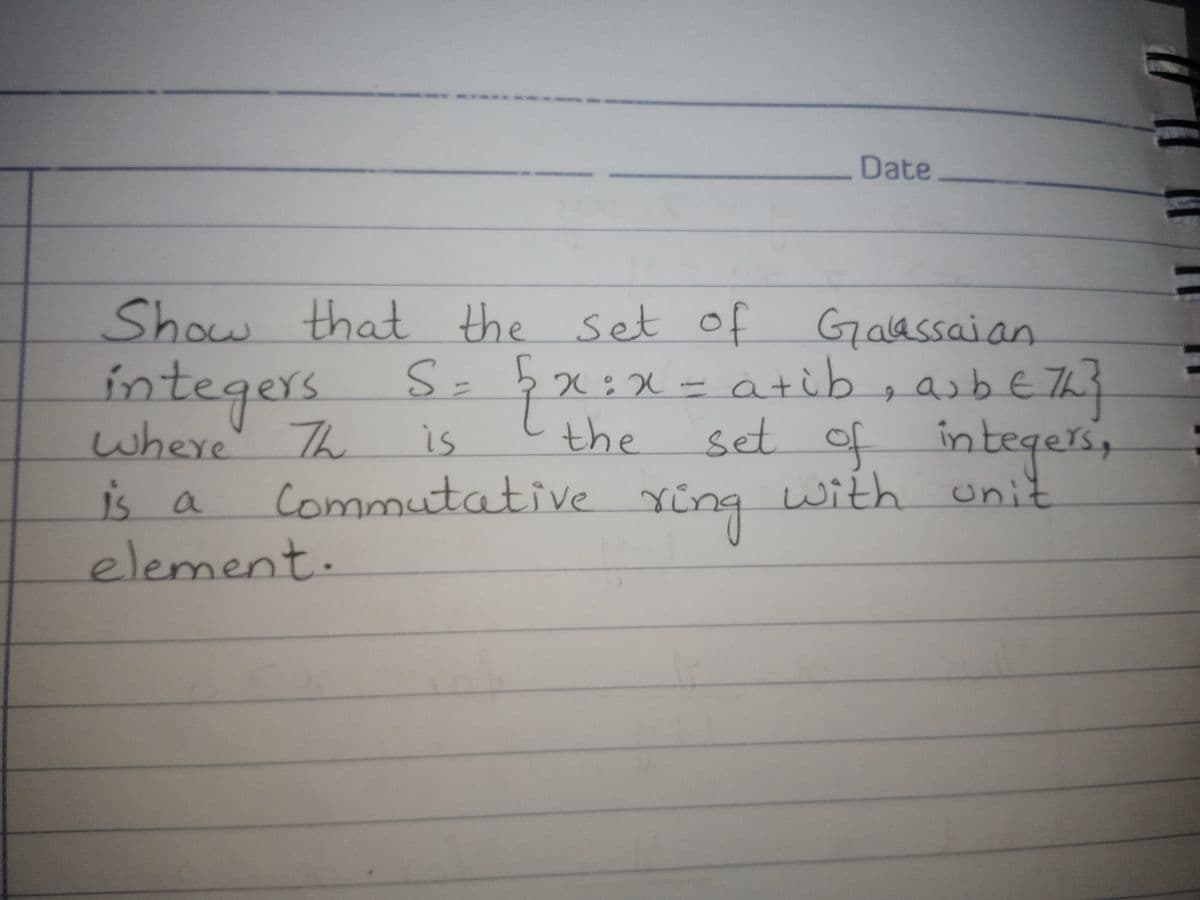 Date
Show that the set of Gaussaian
integers S = {x : x = a+ib, a,b ∈ ℤ}
where ℤ is the set of integers,
is a Commutative ring with unit
element.